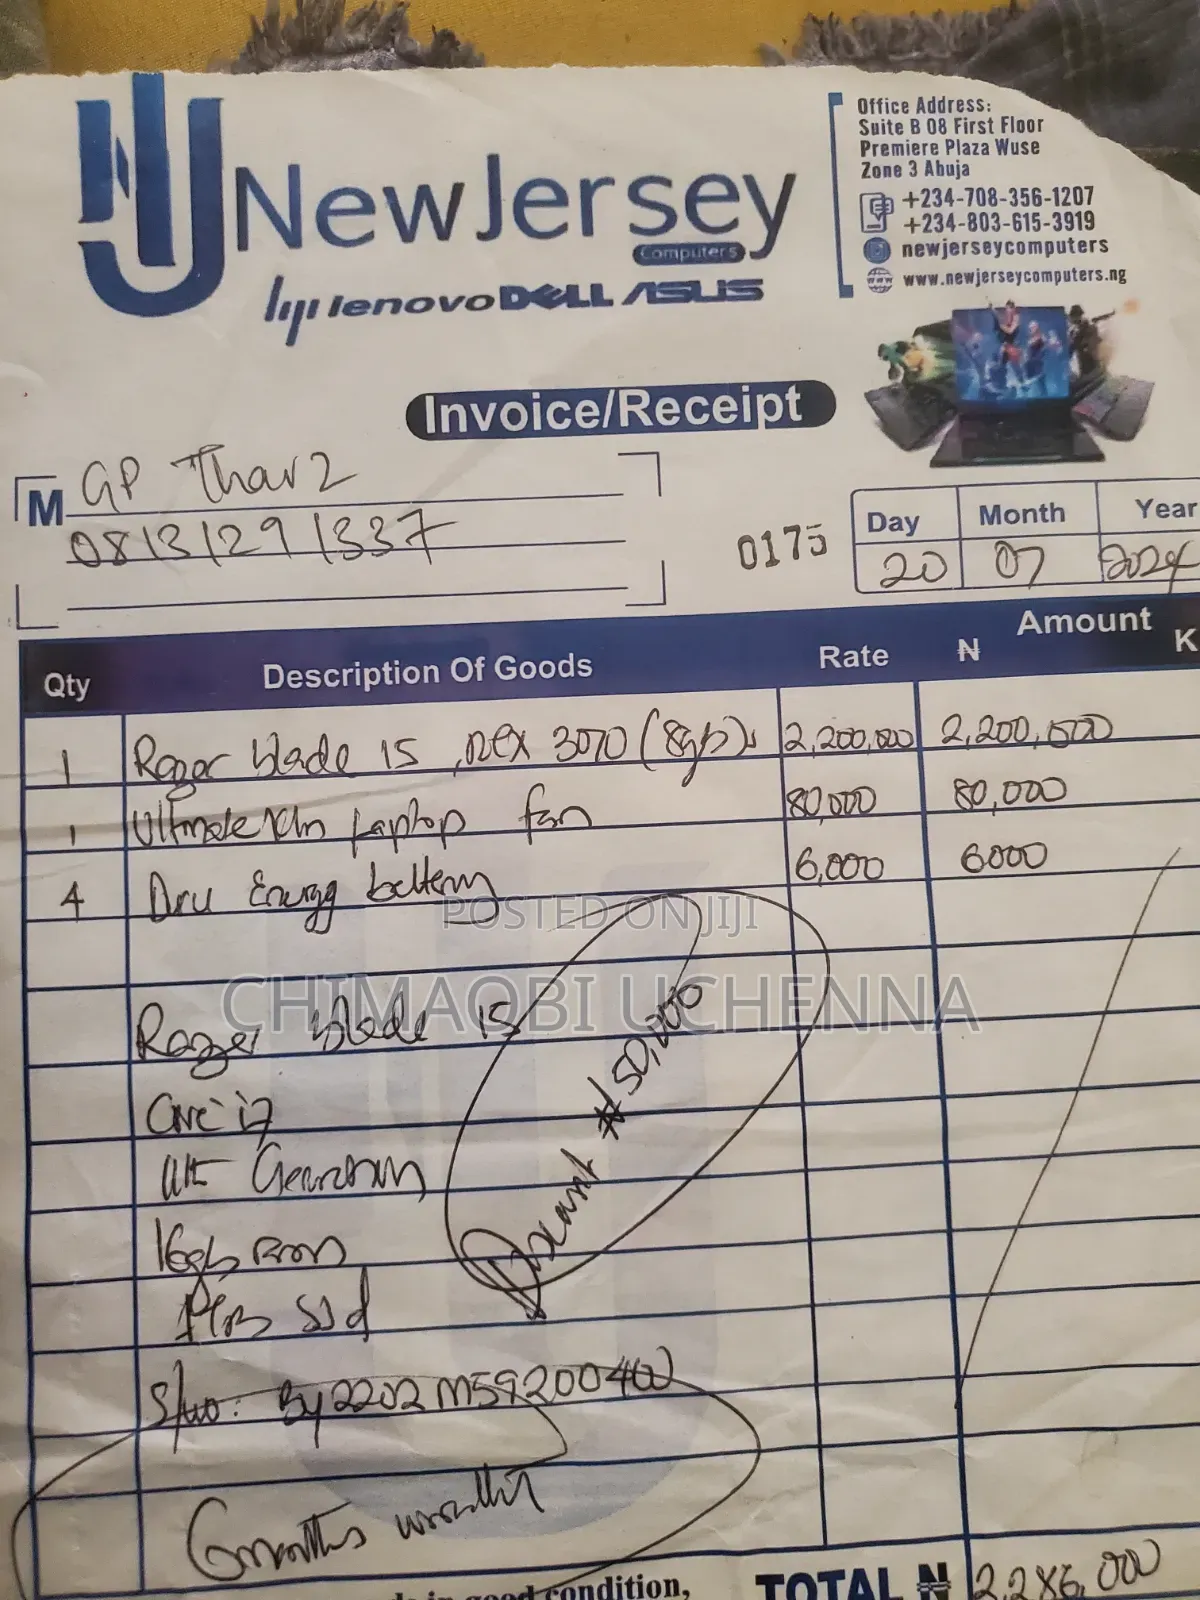 NewJersey
Computers
hp lenovo DELL ASUS
Office Address:
Suite B 08 First Floor
Premiere Plaza Wuse
Zone 3 Abuja
+234-708-356-1207
+234-803-615-3919
newjerseycomputers
www.newjerseycomputers.ng
Invoice/Receipt
M GP Thar2
08131291337
0175
Day Month Year
20 07 2024
Qty Description Of Goods Rate Amount
₦ K
1 Razer blade 15, RTX 3070 (8gb) 2,200,000 2,200,000
1 Laptop fan 80,000 80,000
4 Energy battery 6,000 6000
POSTED ON JIJI
CHIMAOBI UCHENNA
Razer blade 15
Core i7
11th Generation
16gb Ram
1TB SSd
S/no: By2202M59200400
Discount ₦150,000
6months warranty
in good condition,
TOTAL ₦ 2,286,000